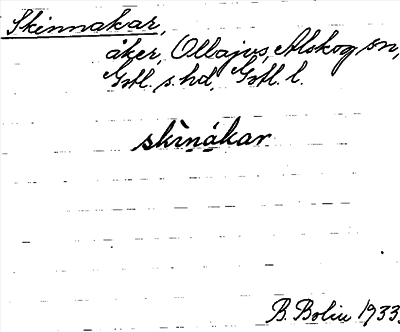 Skinnakar,
åker, Ollajvs, Alskog sn,
Gotl. s. hd, Gotl. l.
skìnákar
B. Bolin 1933.